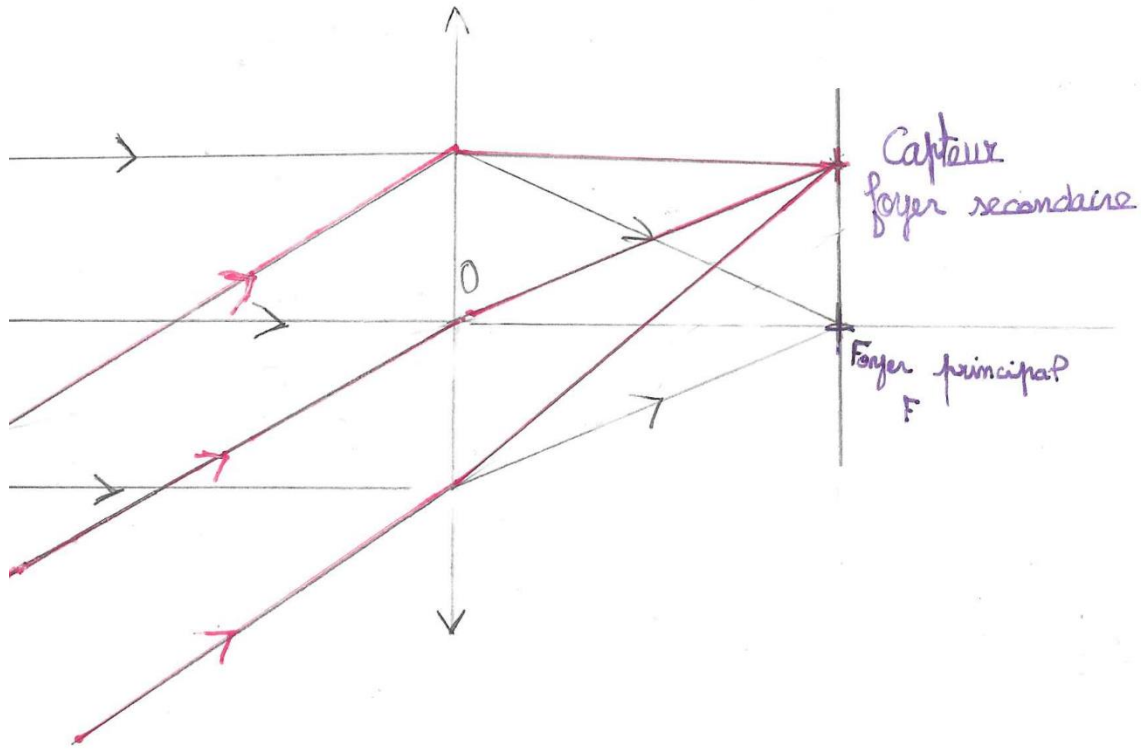 O
Capteur
foyer secondaire
Foyer principal
F